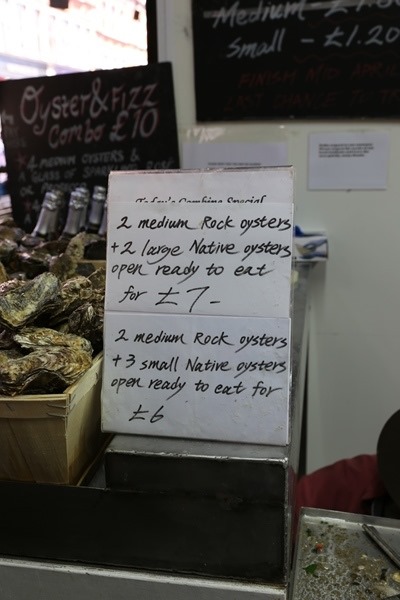 Medium
Small - £1.20
FINISH MID APRIL
LAST CHANCE TO
Oyster & Fizz
Combo £10
4 MEDIUM OYSTERS &
A GLASS OF
OR
Today's Combine Special
2 medium Rock oysters
+2 large Native oysters
open ready to eat
for £7-
2 medium Rock oysters
+3 small Native oysters
open ready to eat for
£6